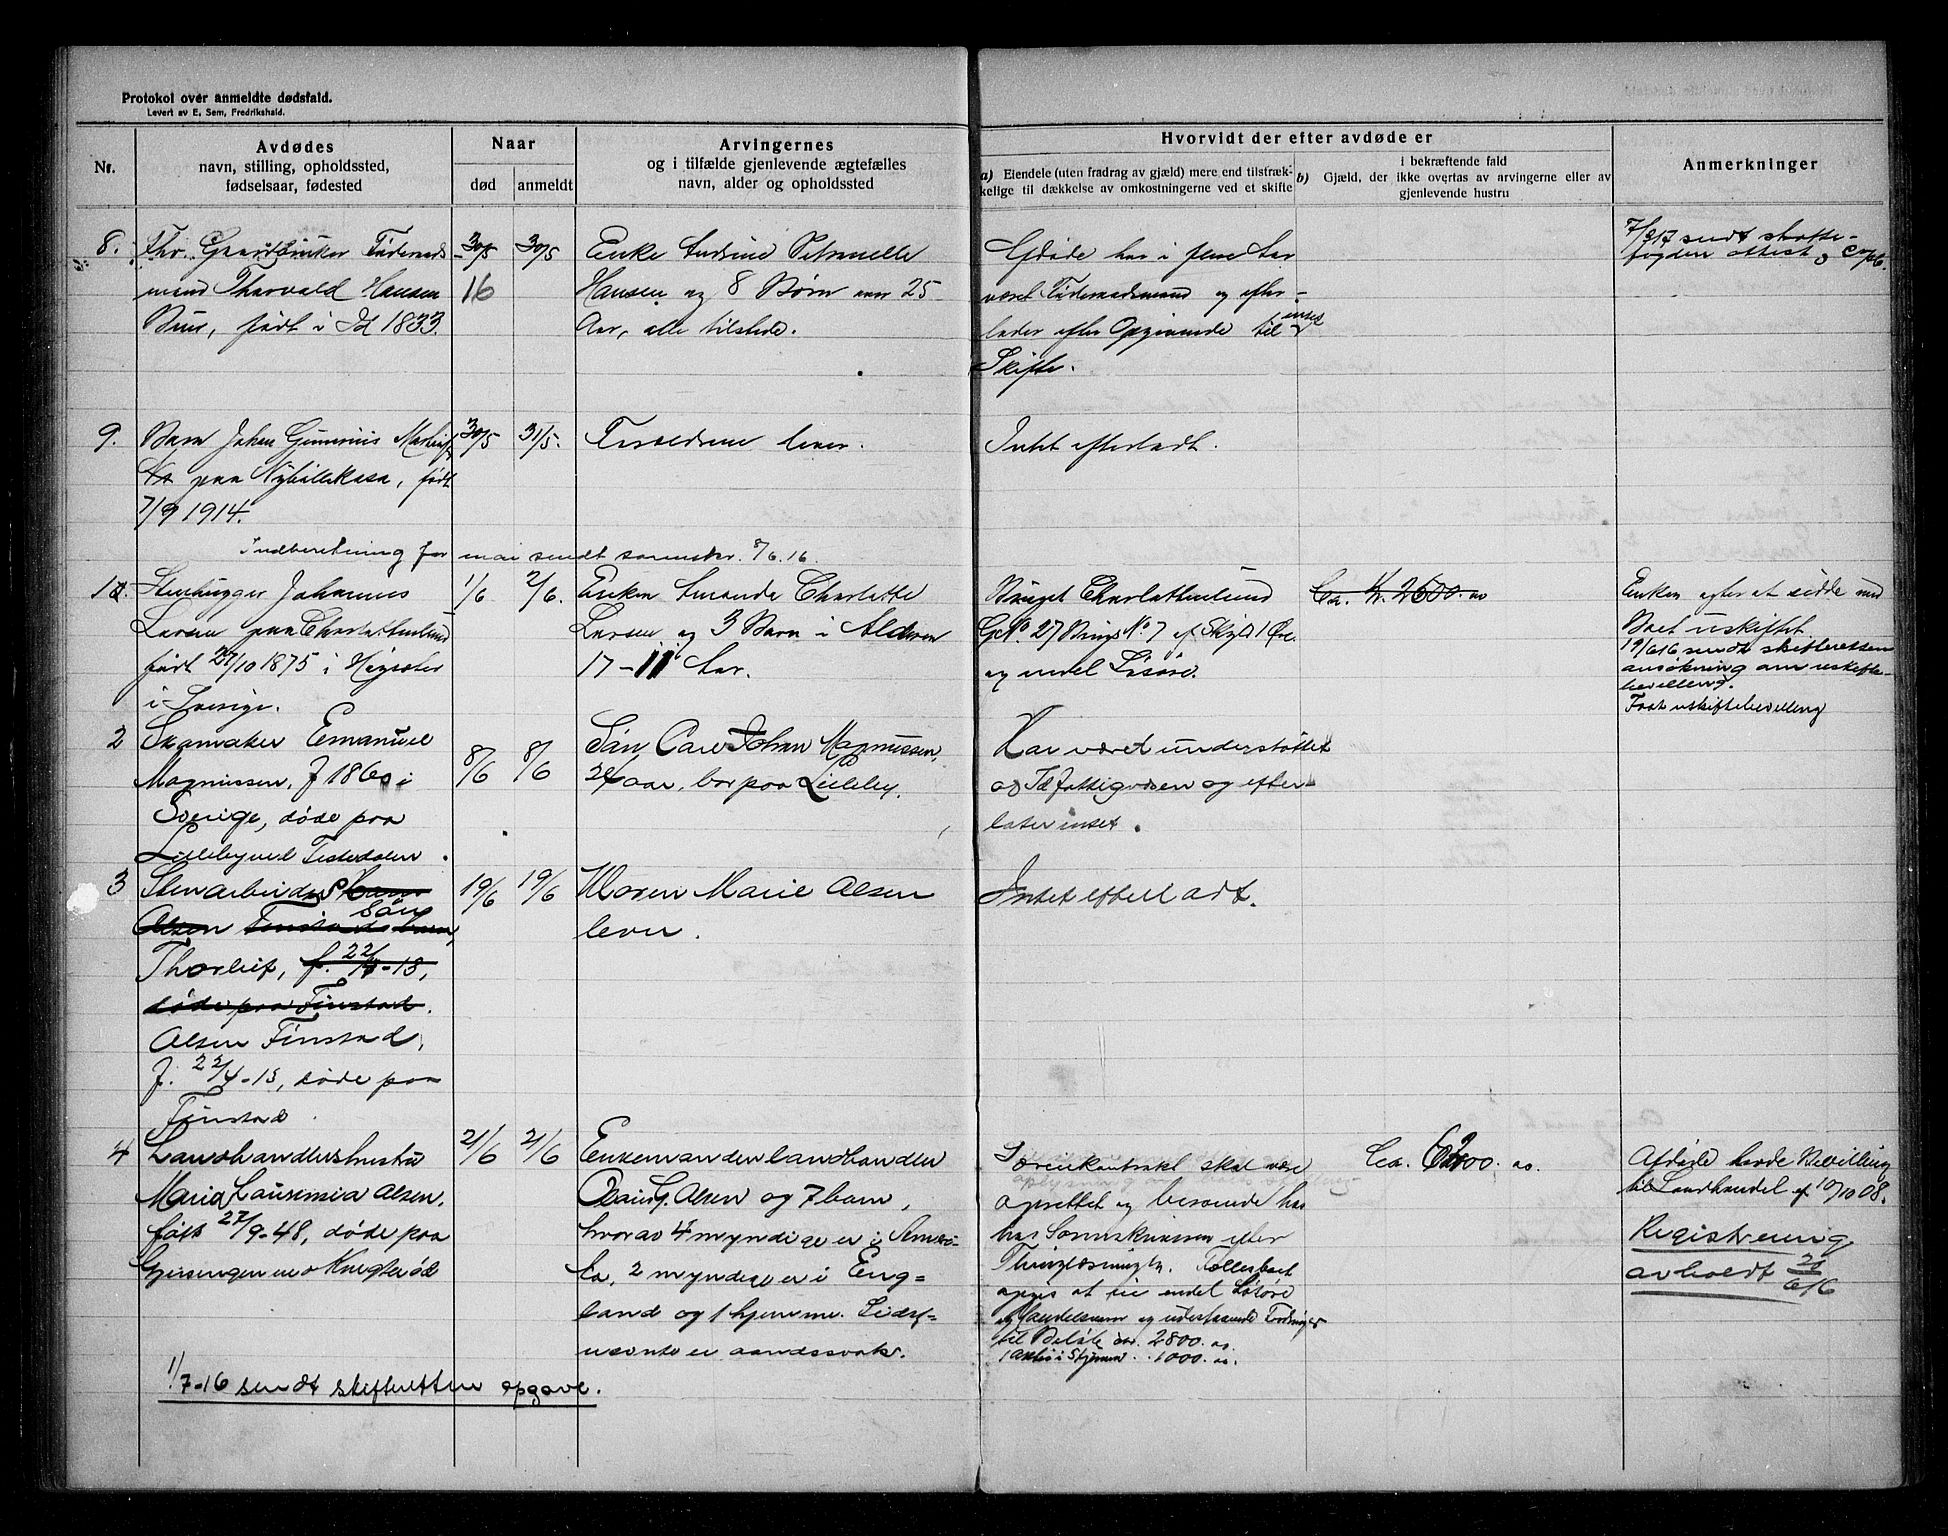 Protokol over anmeldte dødsfald.
Levert av E. Sem, Fredrikshald.
Nr.
Avdødes
navn, stilling, opholdssted,
fødselsaar, fødested
Naar
død
anmeldt
Arvingernes
og i tilfælde gjenlevende ægtefælles
navn, alder og opholdssted
Hvorvidt der efter avdøde er
a) Eiendele (uten fradrag av gjæld) mere end tilstræk-
kelige til dækkelse av omkostningerne ved et skifte
b)
i bekræftende fald
Gjæld, der ikke overtas av arvingerne eller av
gjenlevende hustru
Anmerkninger
8.
Fhv. Gaardbruker Føderaads
mand Thorvald Hansen
Bue, født i Id 1833.
30/5
16
30/5
Enke Petronelle
Hansen og 8 Børn over 25
Aar, alle tilstede.
Afdøde har i flere Aar
været Føderaadsmand og efter-
lader efter Opgivende intet til
Skifte.
7/217 sendt skatte-
fogden attest
9.
Barn Johan
paa Nybillekasa, født
7/9 1914.
30/5
31/5.
Forældrene lever.
Intet efterladt.
Indberetning for mai sendt sorenskr. 8/6.16.
1
Stenhugger Johannes
Larsen paa Charlottenlund
født 27/10 1875 i
i Sverige.
1/6
2/6.
Enken Amanda Charlotte
Larsen og 3 Barn i Alderen
17-11 Aar.
Bruget Charlottenlund
GNo 27 Brugs No 7 af Skyld 1 Øre
og endel Løsøre.
Ca. Kr. 2600.00
Enken agter at sidde med
Boet uskiftet
19/616 sendt skifteretten
ansøkning om uskifte-
bevilling.
Faat uskiftebevilling
2
Skomaker Emanuel
Magnussen, f 1860 i
Sverige, døde paa
Lilleby ved Tistedalen.
8/6
8/6
Søn Carl Johan Magnussen,
24 aar, bor paa Lilleby.
Har været understøttet
av Id fattigvæsen og efter-
later intet.
3
Stenarbeiders
Olsen Finstads barn, Søn
Thorleif, f. 22/4-18,
døde paa Finstad.
Olsen Finstad,
f. 22/4-15, døde paa
Finstad.
19/6
19/6
Moren Marie Olsen
lever.
Intet efterladt.
4
Landhandlershustru
Maria Olsen.
født 27/9-48, døde paa
21/6
21/6
Enkemanden landhandler
Olsen og 7 barn,
hvorav 4 myndige er i Ameri-
ka, 2 myndige er i Eng-
land og 1 hjemme. Sidst-
nævnte er aandssvak.
skal være
oprettet og beroende hos
hos Sorenskriveren efter
Thinglæsning. Fællesboet
opgis at eie endel Løsøre
og Handelsvarer og udestaaende Fordringer
til Beløb ca. 2800.00
1 Aktie i Stjernen 1000.00.
Ca. 6200.00.
Afdøde havde Bevilling
til Landhandel af 10/10 08.
Registrering
avholdt 21/6 16
1/7-16 sendt skifteretten opgave.